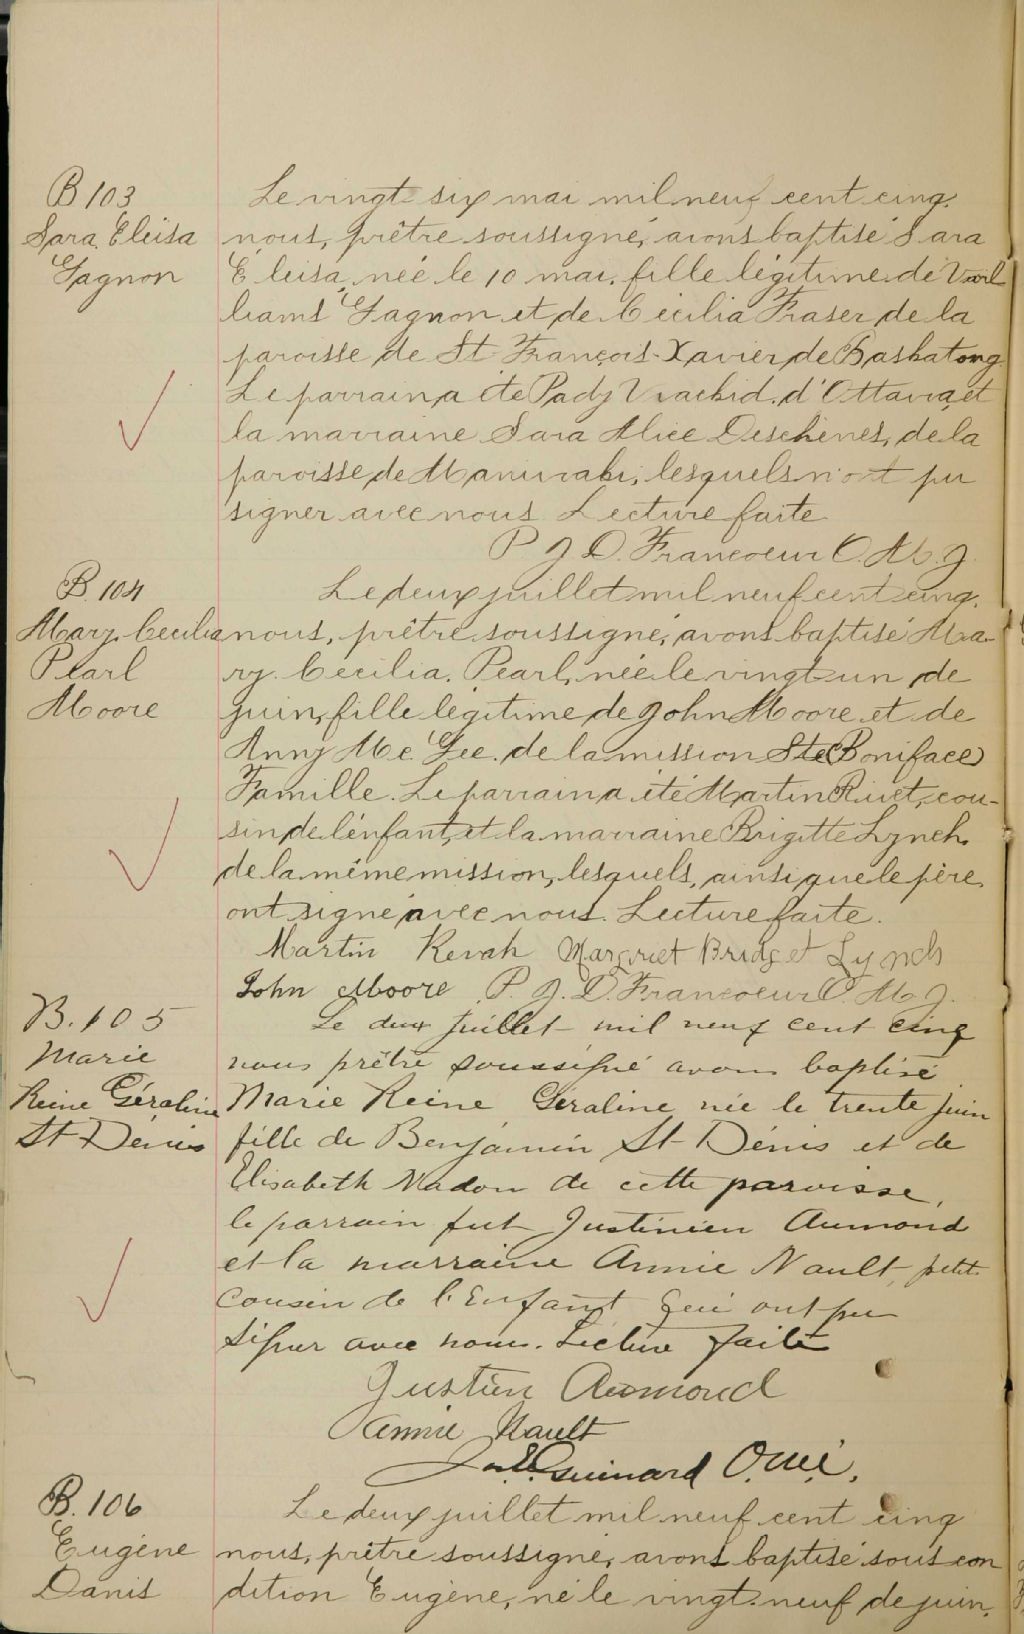 B 103
Sara Eleisa
Gagnon
Le vingt six mai mil neuf cent cinq.
nous, prêtre soussigné, avons baptisé Sara
Eleisa, née le 10 mai, fille légitime de Wil
liams Gagnon et de Cecilia Fraser de la
paroisse de St François-Xavier de Baskatong
Le parrain a été Pady d'Ottawa et
la marraine Sara Alice Deschènes, de la
paroisse de Maniwaki, lesquels n'ont pu
signer avec nous Lecture faite
P J D. Francoeur O. M. J.
B. 104
Mary Cecilia
Pearl
Moore
Le deux juillet mil neuf cent cinq.
nous, prêtre soussigné, avons baptisé Ma-
ry. Cecilia. Pearl, née le vingt-un de
juin, fille légitime de John Moore et de
Anny Mc. Gee. de la mission Ste (Boniface)
Famille. Le parrain a été Martin Rivet, cou-
sin de l'enfant, et la marraine Brigitte Lynch
de la même mission, lesquels, ainsi que le père
ont signé avec nous. Lecture faite.
Martin Kevah Margriet Bridget Lynch
John Moore P. J. D. Francoeur O. M. J.
B. 105
Marie
Reine Géraline
St Dénis
Le deux Juillet mil neuf cent cinq
nous prêtre soussigné avons baptisé
Marie Reine Geraline née le trente juin
fille de Benjamin St Dénis et de
Elisabeth Nadon de cette paroisse,
le parrain fut Justinien Aumond
et la marraine Annie Nault, petit
cousin de l'Enfant qui ont pu
signer avec nous. Lecture faite
Justien Aumond
Annie Nault
Guinard O.M.I.
B. 106
Eugène
Danis
Le deux juillet mil neuf cent cinq
nous, prêtre soussigné, avons baptisé sous con
dition Eugène, né le vingt-neuf de juin,